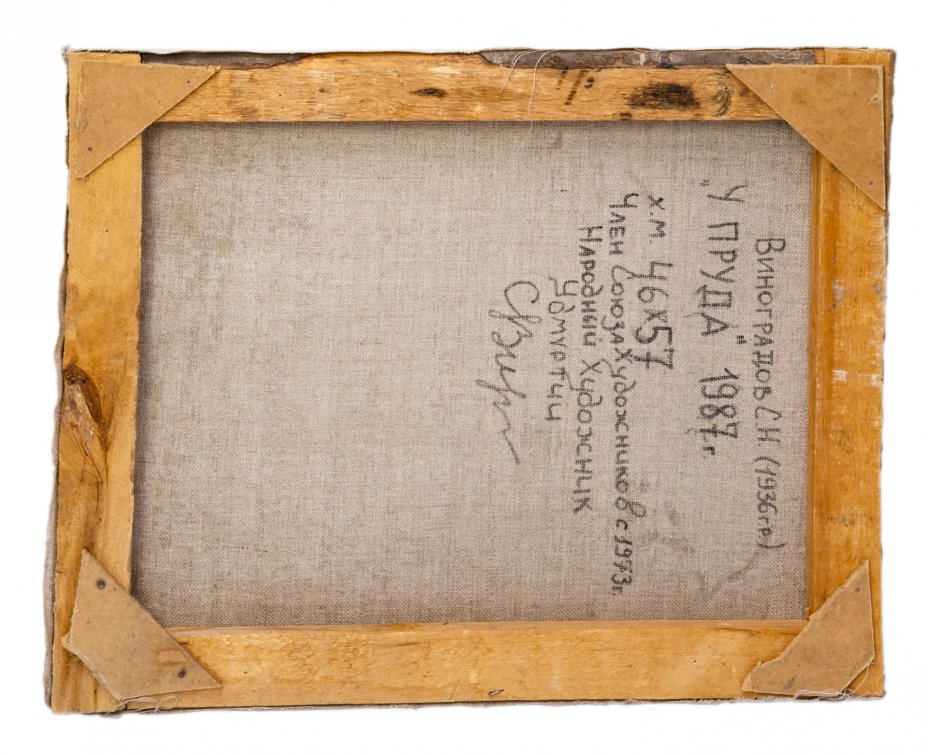 Виноградов С.Н. (1936г.р.)
"У ПРУДА" 1987г.
х.м. 46х57
Член Союза Художников с 1973г
Народный Художник
Удмуртии